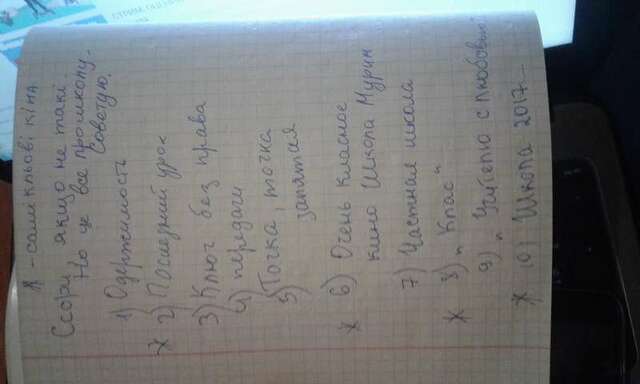 * - самі кльові кіна
Ссори якщо не такі.
Но це все прошколу.
Советую.
1) Одержимость
* 2) Последний урок
3) Ключ без права
4) передачи
5) Точка, точка
запятая
* 6) Очень класное
кино Школа Мурин
7) Частная школа
* 8) "Клас"
9) "Учителю с любовью"
* 10) Школа 2017...